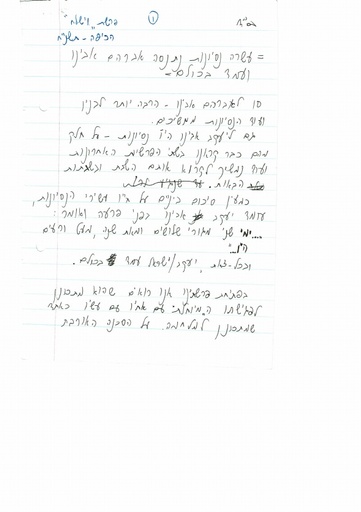 בס"ד ① פרשת "וישלח"
חיפה - תשנ"ח
= עשרה נסיונות נתנסה אברהם אבינו
ועמד בכולם =
סך לאברהם אבינו - הרבה יותר לבנין
ועוד הנסיונות ממשיכים.
גם ליעקב אבינו היו נסיונות - על חלק
מהם כבר קראנו בשתי הפרשיות האחרונות
ועוד נמשיך לקרוא אותם השבת ובשבתות
הבאות.
כמעין סיכום ביניים על חייו עתירי הנסיונות,
עומד יעקב אבינו בפני פרעה ואומר:
"...ימי שני מגורי שלושים ומאת שנה, מעט ורעים
היו..."
ובכל-זאת, יעקב/ישראל עמד בכולם.
בפתיחת פרשתינו אנו רואים שהוא מתכונן
לפגישתו המיוחלת עם אחיו עם עשיו כאשר
שמתכונן למלחמה. על הסכנה האורבת